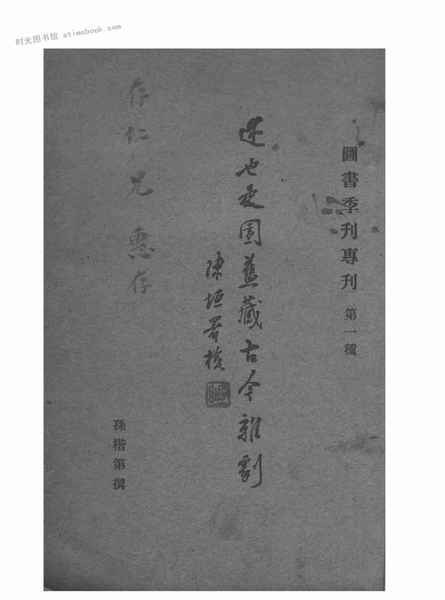 时光图书馆 atimebook.com
圖書季刊專刊 第一種
述也是園舊藏古今雜劇
陳垣署檢
孫楷第撰
存仁兄 惠存